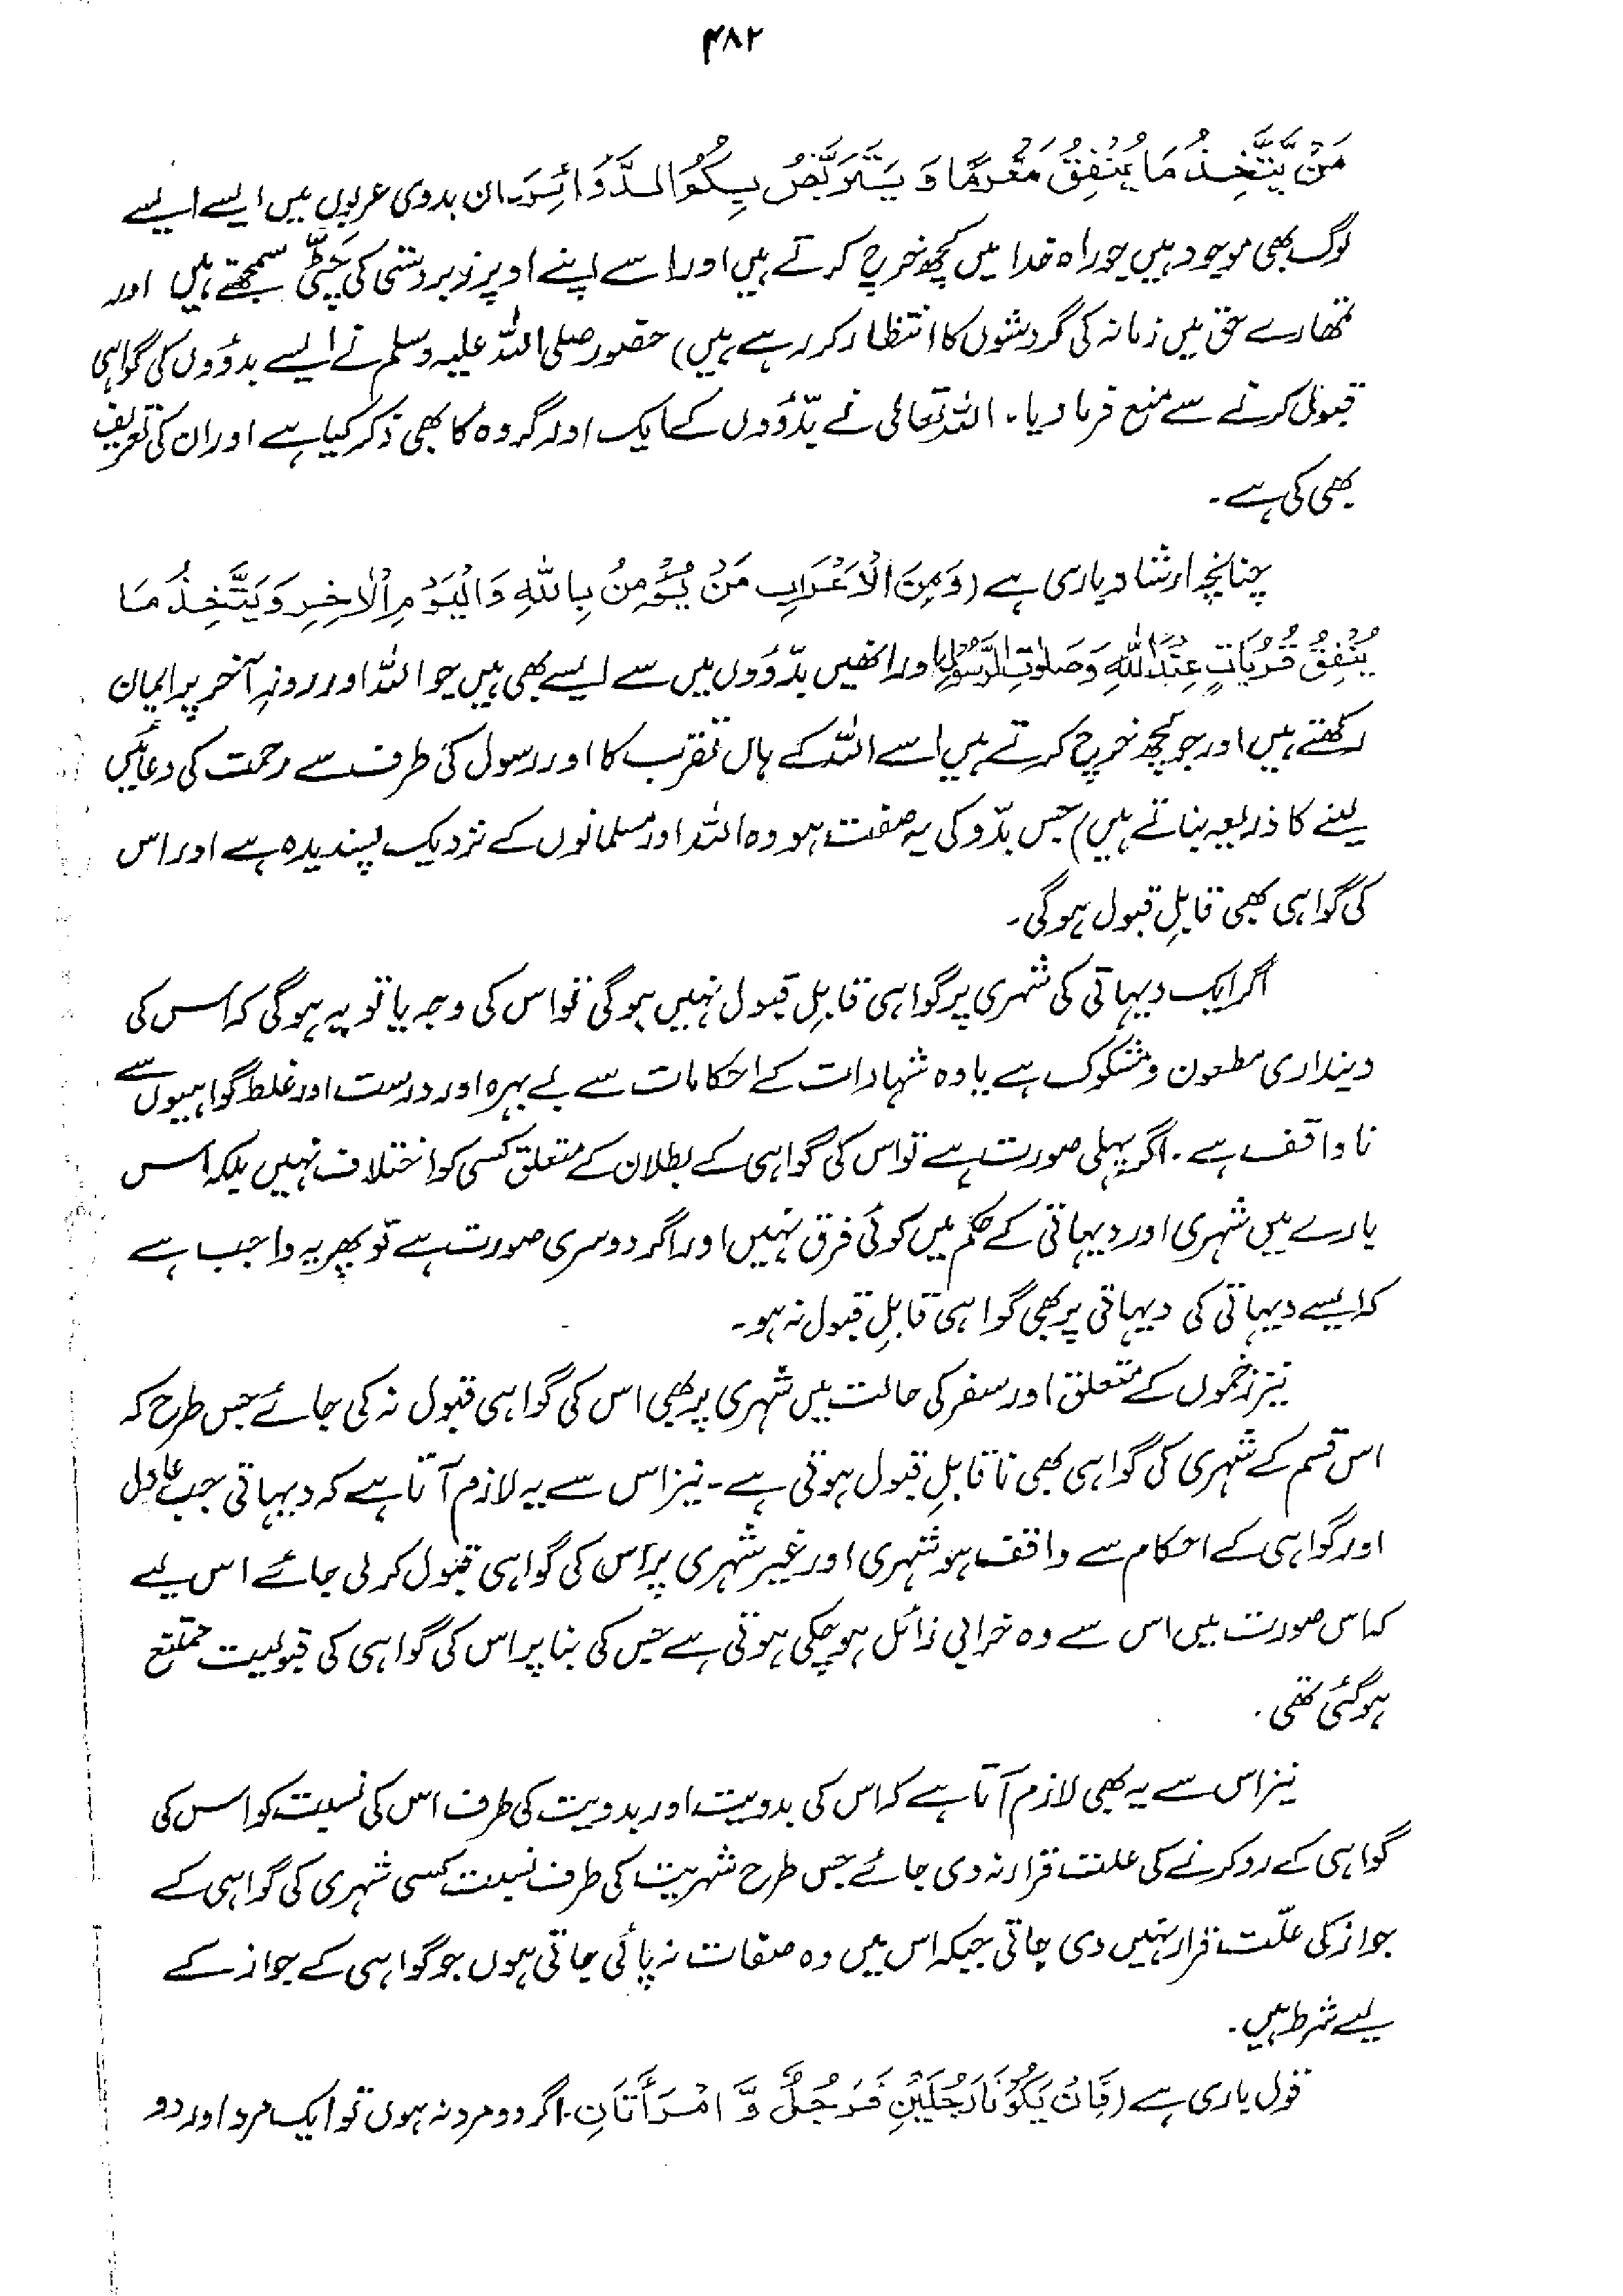 ۴۸۲
مَنْ يَّتَّخِذُ مَا يُنْفِقُ مَغْرَمًا وَ يَتَرَبَّصُ بِكُمُ الدَّوَائِرَ۔ ان بدوی عربوں میں ایسے ایسے
لوگ بھی موجود ہیں جو راہ خدا میں کچھ خرچ کرتے ہیں اور اسے اپنے اوپر زبردستی کی چٹی سمجھتے ہیں اور
تمھارے حق میں زمانہ کی گردشوں کا انتظار کر رہے ہیں) حضور صلی اللہ علیہ وسلم نے ایسے بدوؤں کی گواہی
قبول کرنے سے منع فرما دیا۔ اللہ تعالی نے بدّوؤں کے ایک اور گروہ کا بھی ذکر کیا ہے اور ان کی تعریف
بھی کی ہے۔
چنانچہ ارشاد باری ہے (وَمِنَ الْاَعْرَابِ مَنْ يُّؤْمِنُ بِاللّٰهِ وَالْيَوْمِ الْاٰخِرِ وَيَتَّخِذُ مَا
يُنْفِقُ قُرُبَاتٍ عِنْدَ اللّٰهِ وَصَلَوٰتِ الرَّسُوْلِ اور انھیں بدّوؤں میں سے ایسے بھی ہیں جو اللہ اور روزِ آخر پر ایمان
رکھتے ہیں اور جو کچھ خرچ کرتے ہیں اسے اللہ کے ہاں تقرب کا اور رسول کی طرف سے رحمت کی دعائیں
لینے کا ذریعہ بناتے ہیں) جس بدّو کی یہ صفت ہو وہ اللہ اور مسلمانوں کے نزدیک پسندیدہ ہے اور اس
کی گواہی بھی قابلِ قبول ہوگی۔
اگر ایک دیہاتی کی شہری پر گواہی قابلِ قبول نہیں ہوگی تو اس کی وجہ یا تو یہ ہوگی کہ اس کی
دینداری مطعون و مشکوک ہے یا وہ شہادات کے احکامات سے بے بہرہ اور درست اور غلط گواہیوں سے
ناواقف ہے۔ اگر پہلی صورت ہے تو اس کی گواہی کے بطلان کے متعلق کسی کو اختلاف نہیں بلکہ اس
بارے میں شہری اور دیہاتی کے حکم میں کوئی فرق نہیں اور اگر دوسری صورت ہے تو پھر یہ واجب ہے
کہ ایسے دیہاتی کی دیہاتی پر بھی گواہی قابلِ قبول نہ ہو۔
نیز زخموں کے متعلق اور سفر کی حالت میں شہری پر بھی اس کی گواہی قبول نہ کی جائے جس طرح کہ
اس قسم کے شہری کی گواہی بھی ناقابلِ قبول ہوتی ہے۔ نیز اس سے یہ لازم آتا ہے کہ دیہاتی جب عادل
اور گواہی کے احکام سے واقف ہو شہری اور غیر شہری پر اس کی گواہی قبول کر لی جائے اس لیے
کہ اس صورت میں اس سے وہ خرابی زائل ہو چکی ہوتی ہے جس کی بنا پر اس کی گواہی کی قبولیت ممتنع
ہوگئی تھی۔
نیز اس سے یہ بھی لازم آتا ہے کہ اس کی بدویت اور بدویت کی طرف اس کی نسبت کو اس کی
گواہی کے رد کرنے کی علت قرار نہ دی جائے جس طرح شہریت کی طرف نسبت کسی شہری کی گواہی کے
جواز کی علّت قرار نہیں دی جاتی جبکہ اس میں وہ صفات نہ پائی جاتی ہوں جو گواہی کے جواز کے
لیے شرط ہیں۔
قول باری ہے (فَاِنْ يَكُوْنَا رَجُلَيْنِ فَرَجُلٌ وَّ امْرَأَتَانِ۔ اگر دو مرد نہ ہوں تو ایک مرد اور دو